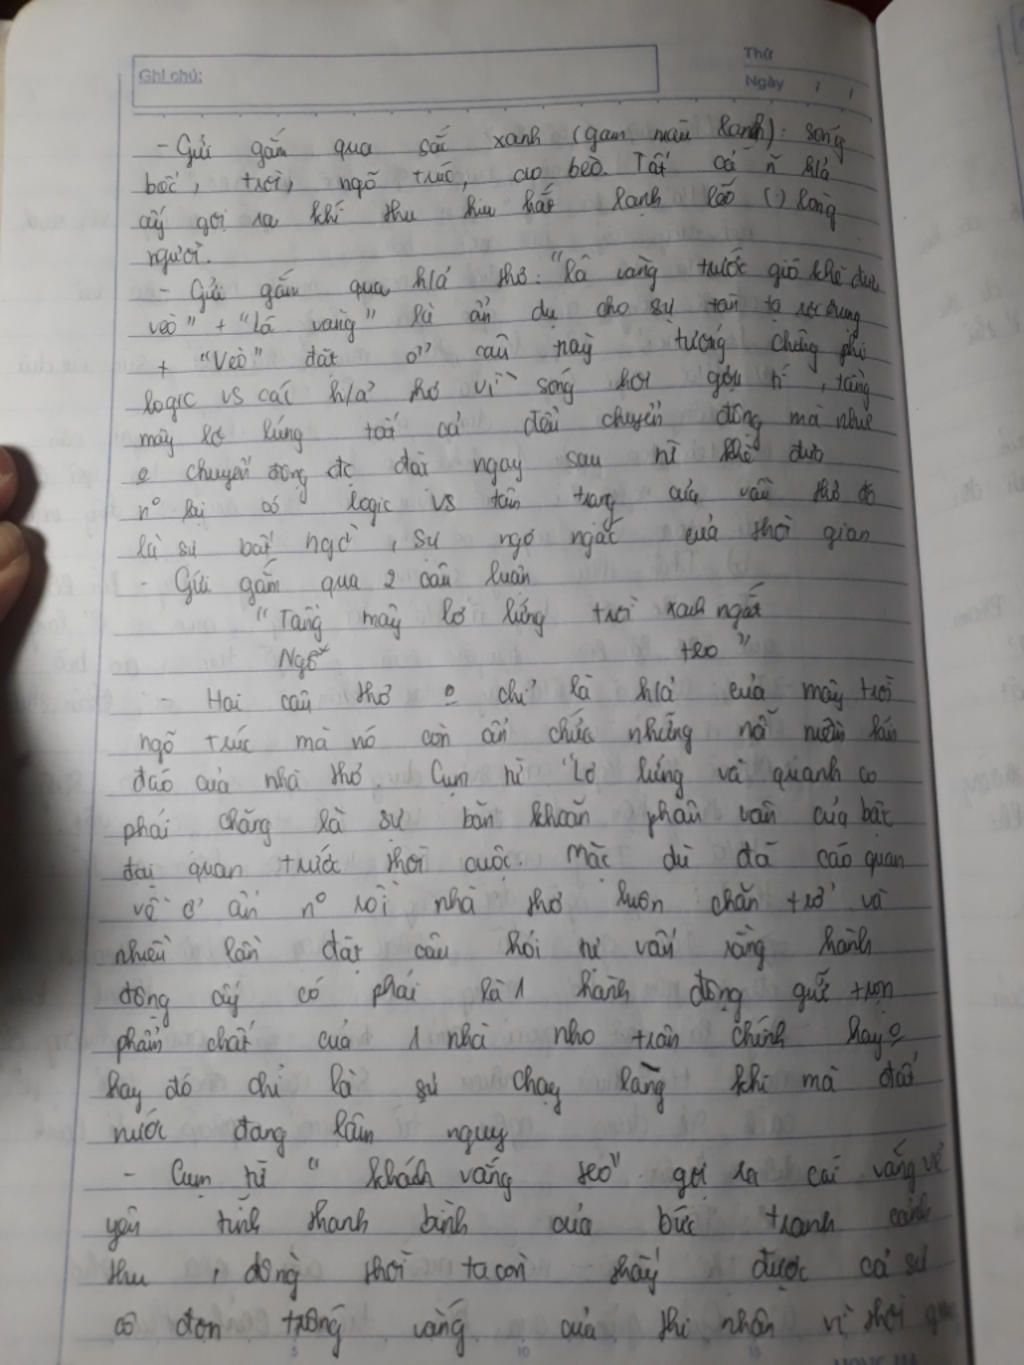 Ghi chú:
Thứ
Ngày / /
- Gửi gắm qua sắc xanh (gam màu lạnh): sóng
biếc, trời, ngõ trúc, ao bèo. Tất cả n~ h/ả
ấy gợi ra khí thu hiu hắt lạnh lẽo (:) lòng
người.
- Gửi gắm qua h/ả thơ: "lá vàng trước gió khẽ đưa
vèo" + "Lá vàng" là ẩn dụ cho sự tàn tạ
+ "Vèo" đặt ở câu này tưởng chừng phi
logic vs các h/ả thơ vì sóng hơi gợn tí, tầng
mây lơ lửng tất cả đều chuyển động mà như
o chuyển động đc đặt ngay sau từ khẽ đưa
n° lại có logic vs tâm trạng của văn thơ đó
là sự bất ngờ, sự ngơ ngác của thời gian
- Gửi gắm qua 2 câu luận
"Tầng mây lơ lửng trời xanh ngắt
Ngõ teo"
- Hai câu thơ o chỉ là h/ả của mây trời
ngõ trúc mà nó còn ẩn chứa những nỗi niềm kín
đáo của nhà thơ. Cụm từ "Lơ lửng và quanh co
phải chăng là sự băn khoăn phân vân của bậc
đại quan trước thời cuộc. Mặc dù đã cáo quan
về ở ẩn n° rồi nhà thơ luôn chăn trở và
nhiều lần đặt câu hỏi tư vấn rằng hành
động ấy có phải là 1 hành động giữ trọn
phẩm chất của 1 nhà nho trân chính hay o
hay đó chỉ là sự chạy làng khi mà đất
nước đang lâm nguy
- Cụm từ "khách vắng teo" gợi ra cái vắng vẻ
yên tĩnh thanh bình của bức tranh cảnh
thu, đồng thời ta còn thấy được cả sự
cô đơn trống vắng của thi nhân vì thời
5 10 15